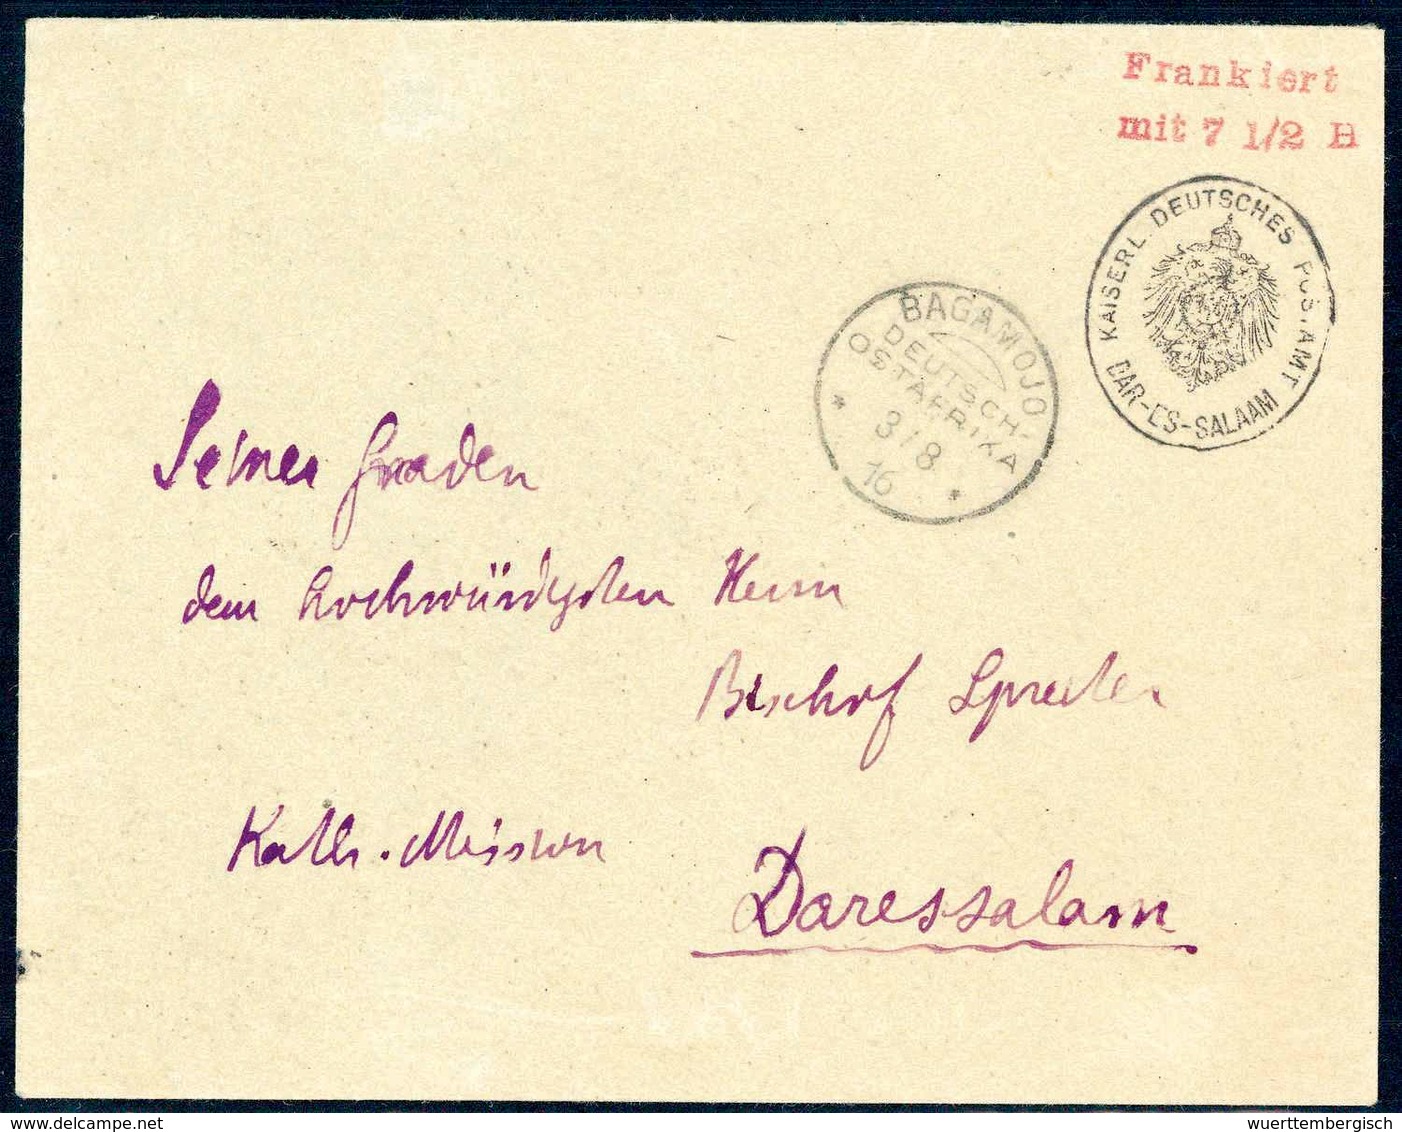 Frankiert
mit 7 1/2 H
KAISERL. DEUTSCHES POSTAMT
DAR-ES-SALAAM
BAGAMOJO
DEUTSCH-
OSTAFRIKA
3/8
16
Seiner Gnaden
dem hochwürdigsten Herrn
Bischof Spreiter
Kath. Mission
Daressalam
wuerttembergisch